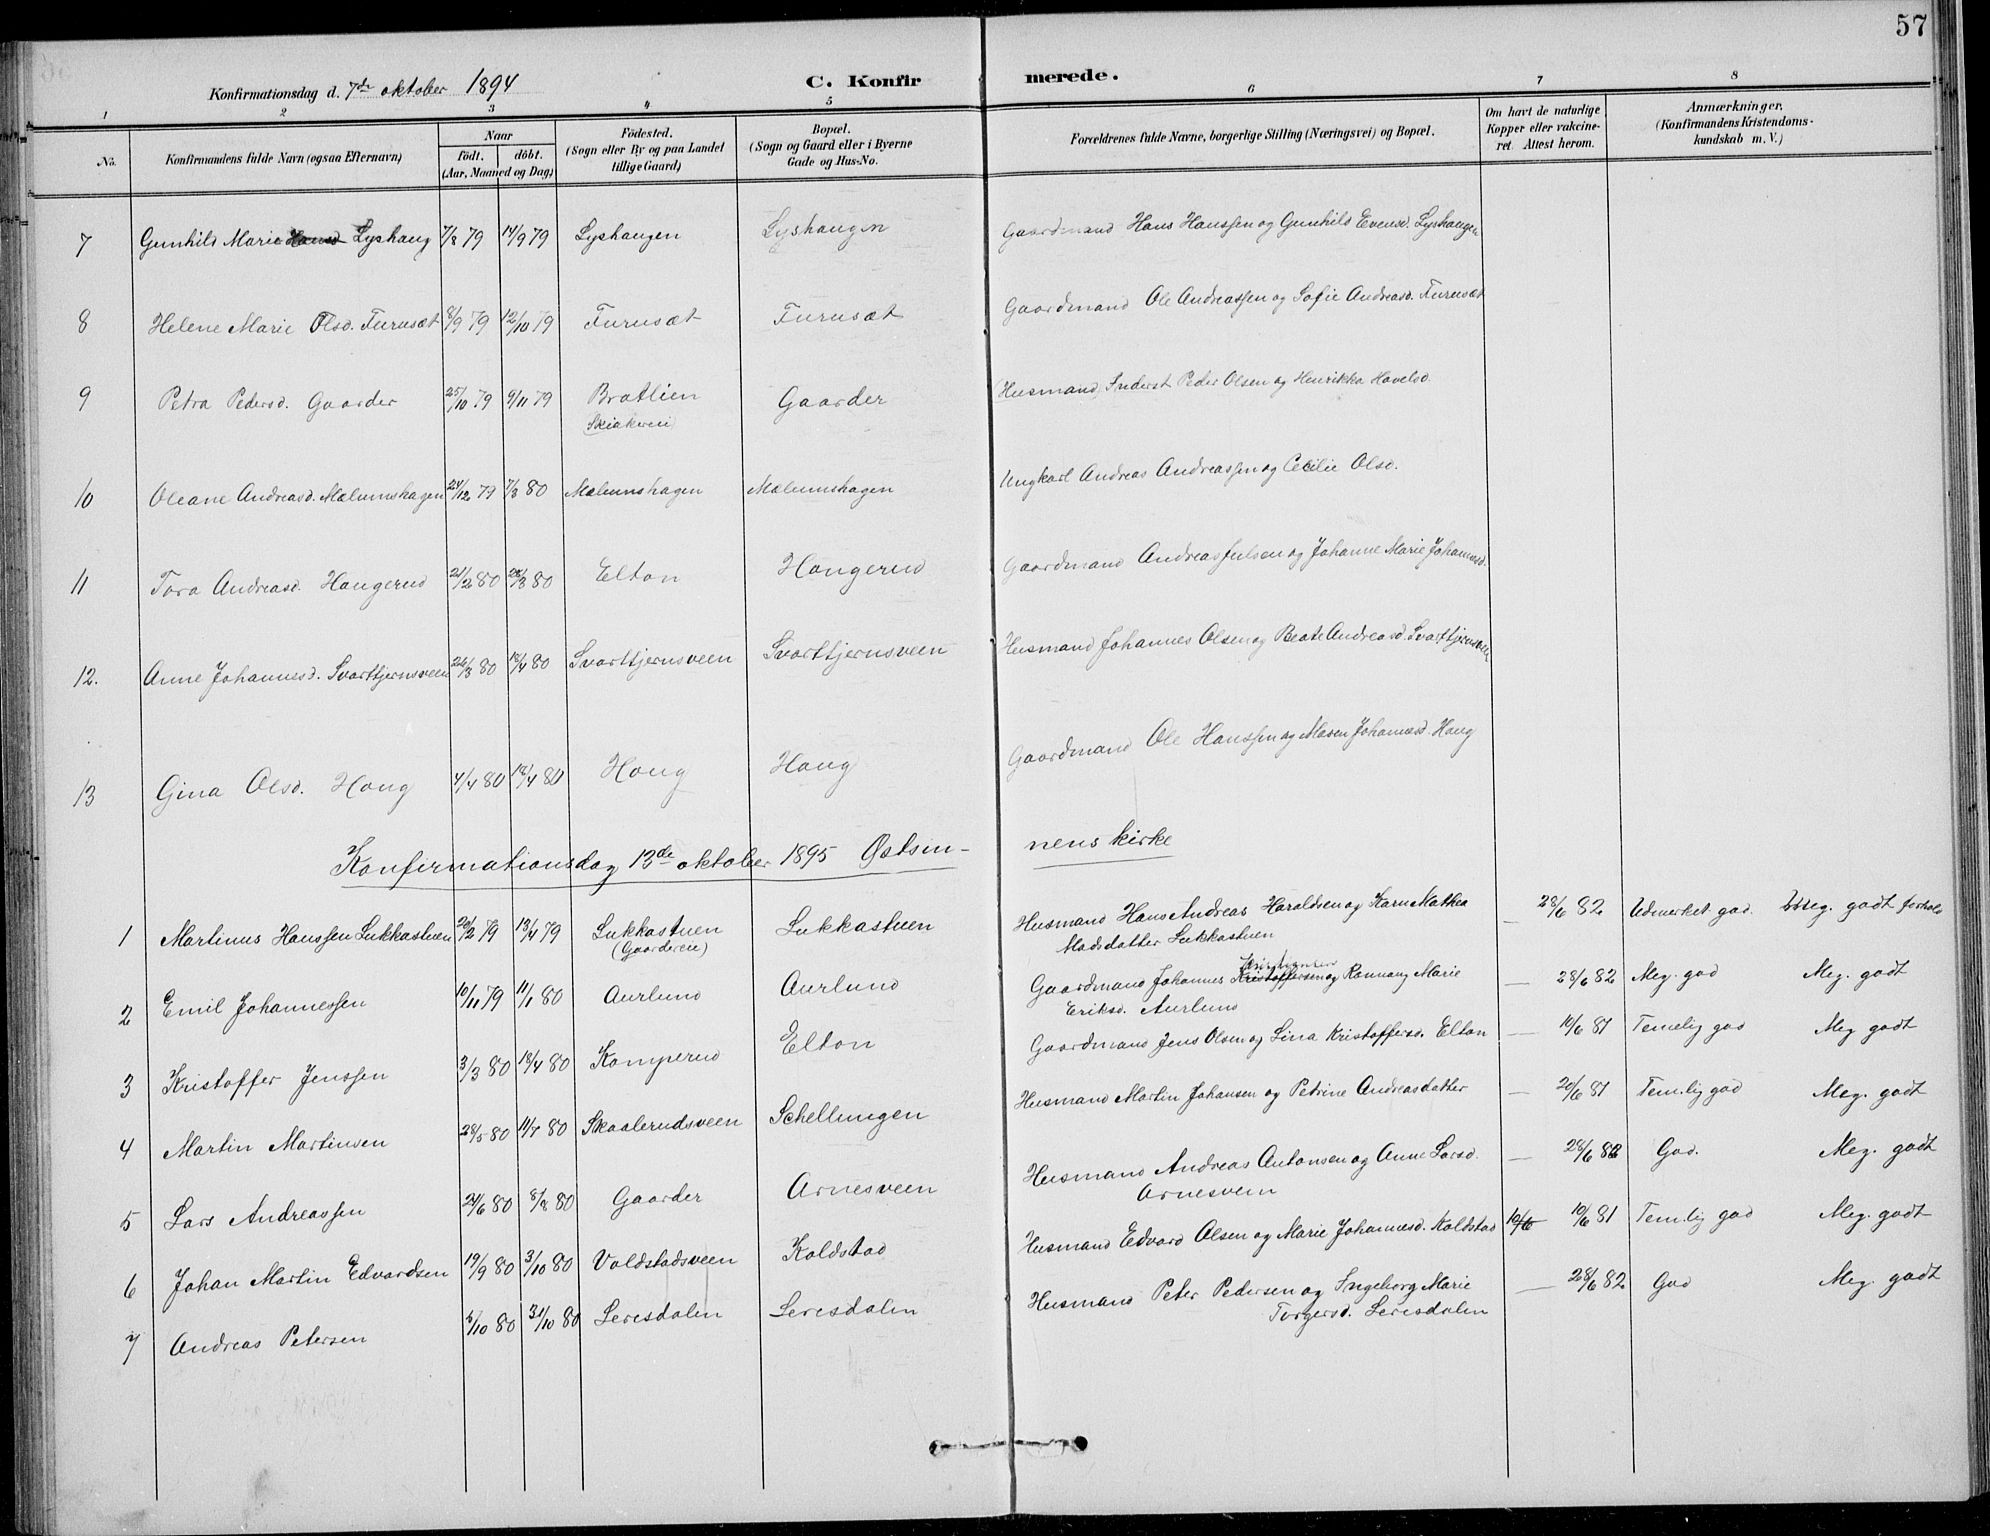 57
Konfirmationsdag d. 7de oktober 1894 C. Konfirmerede.
1 2 3 4 5 6 7 8
No. Konfirmandens fulde Navn (ogsaa Efternavn) Naar født. døbt. (Aar, Maaned og Dag) Fødested. (Sogn eller By og paa Landet tillige Gaard) Bopæl. (Sogn og Gaard eller i Byerne Gade og Hus-No. Forældrenes fulde Navne, borgerlige Stilling (Næringsvei) og Bopæl. Om havt de naturlige Kopper eller vakcineret. Attest herom. Anmærkninger. (Konfirmandens Kristendomskundskab m. V.)
7 Gunhild Marie Hansd Lyshaug 7/8 79 14/9 79 Lyshaugen Lyshaugen Gaardmand Hans Hanssen og Gunhild Evensd. Lyshaugen
8 Helene Marie Olsd. Furusæt 8/9 79 12/10 79 Furusæt Furusæt Gaardmand Ole Andreassen og Sofie Andreasd. Furusæt
9 Petra Pedersd. Gaarder 25/10 79 9/11 79 Bratlien Gaarder Husmand Inderst Peder Olsen og Henrikka Hovelsd.
10 Oleane Andreasd. Mælumshagen 24/12 79 7/3 80 Mælumshagen Mælumshagen Ungkarl Andreas Andreassen og Cecilie Olsd.
11 Tora Andreasd. Haugerud 21/2 80 28/3 80 Elton Haugerud Gaardmand Andreas Julsen og Johanne Marie Johannesd.
12. Anne Johannesd. Svarttjernsveen 26/3 80 18/4 80 Svarttjernsveen Svarttjernsveen Husmand Johannes Olsen og Beate Andreasd. Svarttjernsveen
13 Gina Olsd. Haug 4/4 80 18/4 80 Haug Haug Gaardmand Ole Hanssen og Maren Johannesd. Haug
Konfirmationsdag 13de oktober 1895 Østsinnens kirke
1 Martinus Hanssen Lukkastuen 20/2 79 13/4 79 Lukkastuen Lukkastuen Husmand Hans Andreas Haraldsen og Karn Mathea 28/6 82 Udmerket god. Meg. godt forhold
(Gaardereie) Madsdatter Lukkastuen
2 Emil Johannessen 10/11 79 11/1 80 Aurlund Aurlund Gaardmand Johannes Kristoffersen og Rannaug Marie — 28/6 82 Meg. god Meg. godt
Eriksd. Aurlund
3 Kristoffer Jenssen 3/3 80 18/4 80 Kamperud Elton Gaardmand Jens Olsen og Lina Kristoffersd. Elton — 10/6 81 Temelig god Meg godt
4 Martin Martinsen 28/5 80 11/7 80 Skaalerudsveen Schellungen Husmand Martin Johansen og Petrine Andreasdatter — 20/6 81 Temlig god Meg. godt
5 Lars Andreassen 24/6 80 8/8 80 Gaarder Arnesveen Husmand Andreas Antonsen og Anne Larsd. — 28/6 82 God. Meg. godt
Arnesveen
6 Johan Martin Edvardsen 19/9 80 3/10 80 Voldstadsveen Koldstad Husmand Edvard Olsen og Marie Johannesd. Koldstad 10/6 10/6 81 Temlig god Meg. godt
7 Andreas Petersen 5/10 80 31/10 80 Leresdalen Leresdalen Husmand Peter Pedersen og Ingeborg Marie — 28/6 82 God Meg. godt
Torgersd. Leresdalen